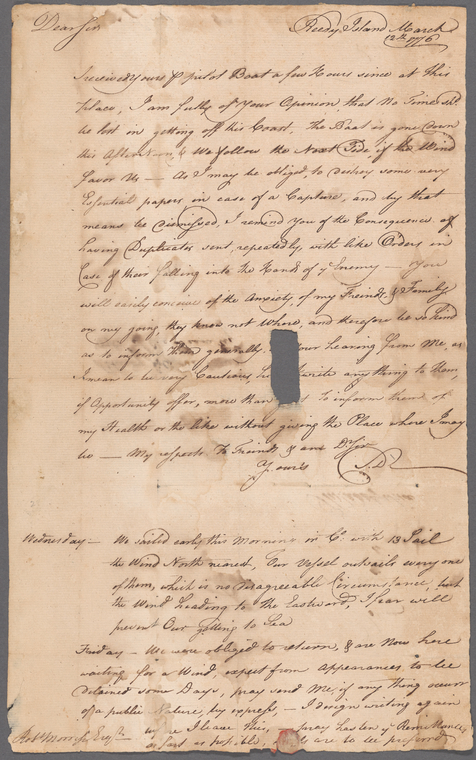 Dear Sir
Reedy Island March
12th 1776
I received yours p pilot Boat a few Hours since at this
place, I am fully of Your Opinion that no Time shd.
be lost in getting off this Coast. The Boat is gone down
this Afternoon, & We follow the Next Tide if the Wind
favor Us — As I may be obliged to destroy some very
Essential papers in case of a Capture, and by that
means be dismissed, I remind You of the Consequence of
having Duplicates sent, repeatedly with like Orders in
Case of their falling into the Hands of ye Enemy — You
will easily conceive of the Anxiety of my Freinds, & Family
on my going, they know not Where, and therefore be so kind
as to inform them generally, Your hearing from Me, as
I mean to be very Cautious write any thing to them,
if Opportunity offer, more than to inform them of
my Health or the like without giving the Place where I may
be — My respects to Freinds & am D Sir
Yours S. D
Wednesday — We sailed early this Morning in Co. with 13 Sail
the Wind North nearest, Our Vessel outsails every one
of them, which is no disagreeable Circumstance, but
the Wind heading to the Eastward, I fear will
prevent Our Getting to Sea
Friday — We were obliged to return, & are Now here
waiting for a Wind, expect from Appearances to be
detained some Days, pray send Me, if any thing occurr
of a public Nature, by express, — I design writing again
I leave this, pray hasten ye Remittances
as fast as possible, are to be preferred
Robt Morris Esqr